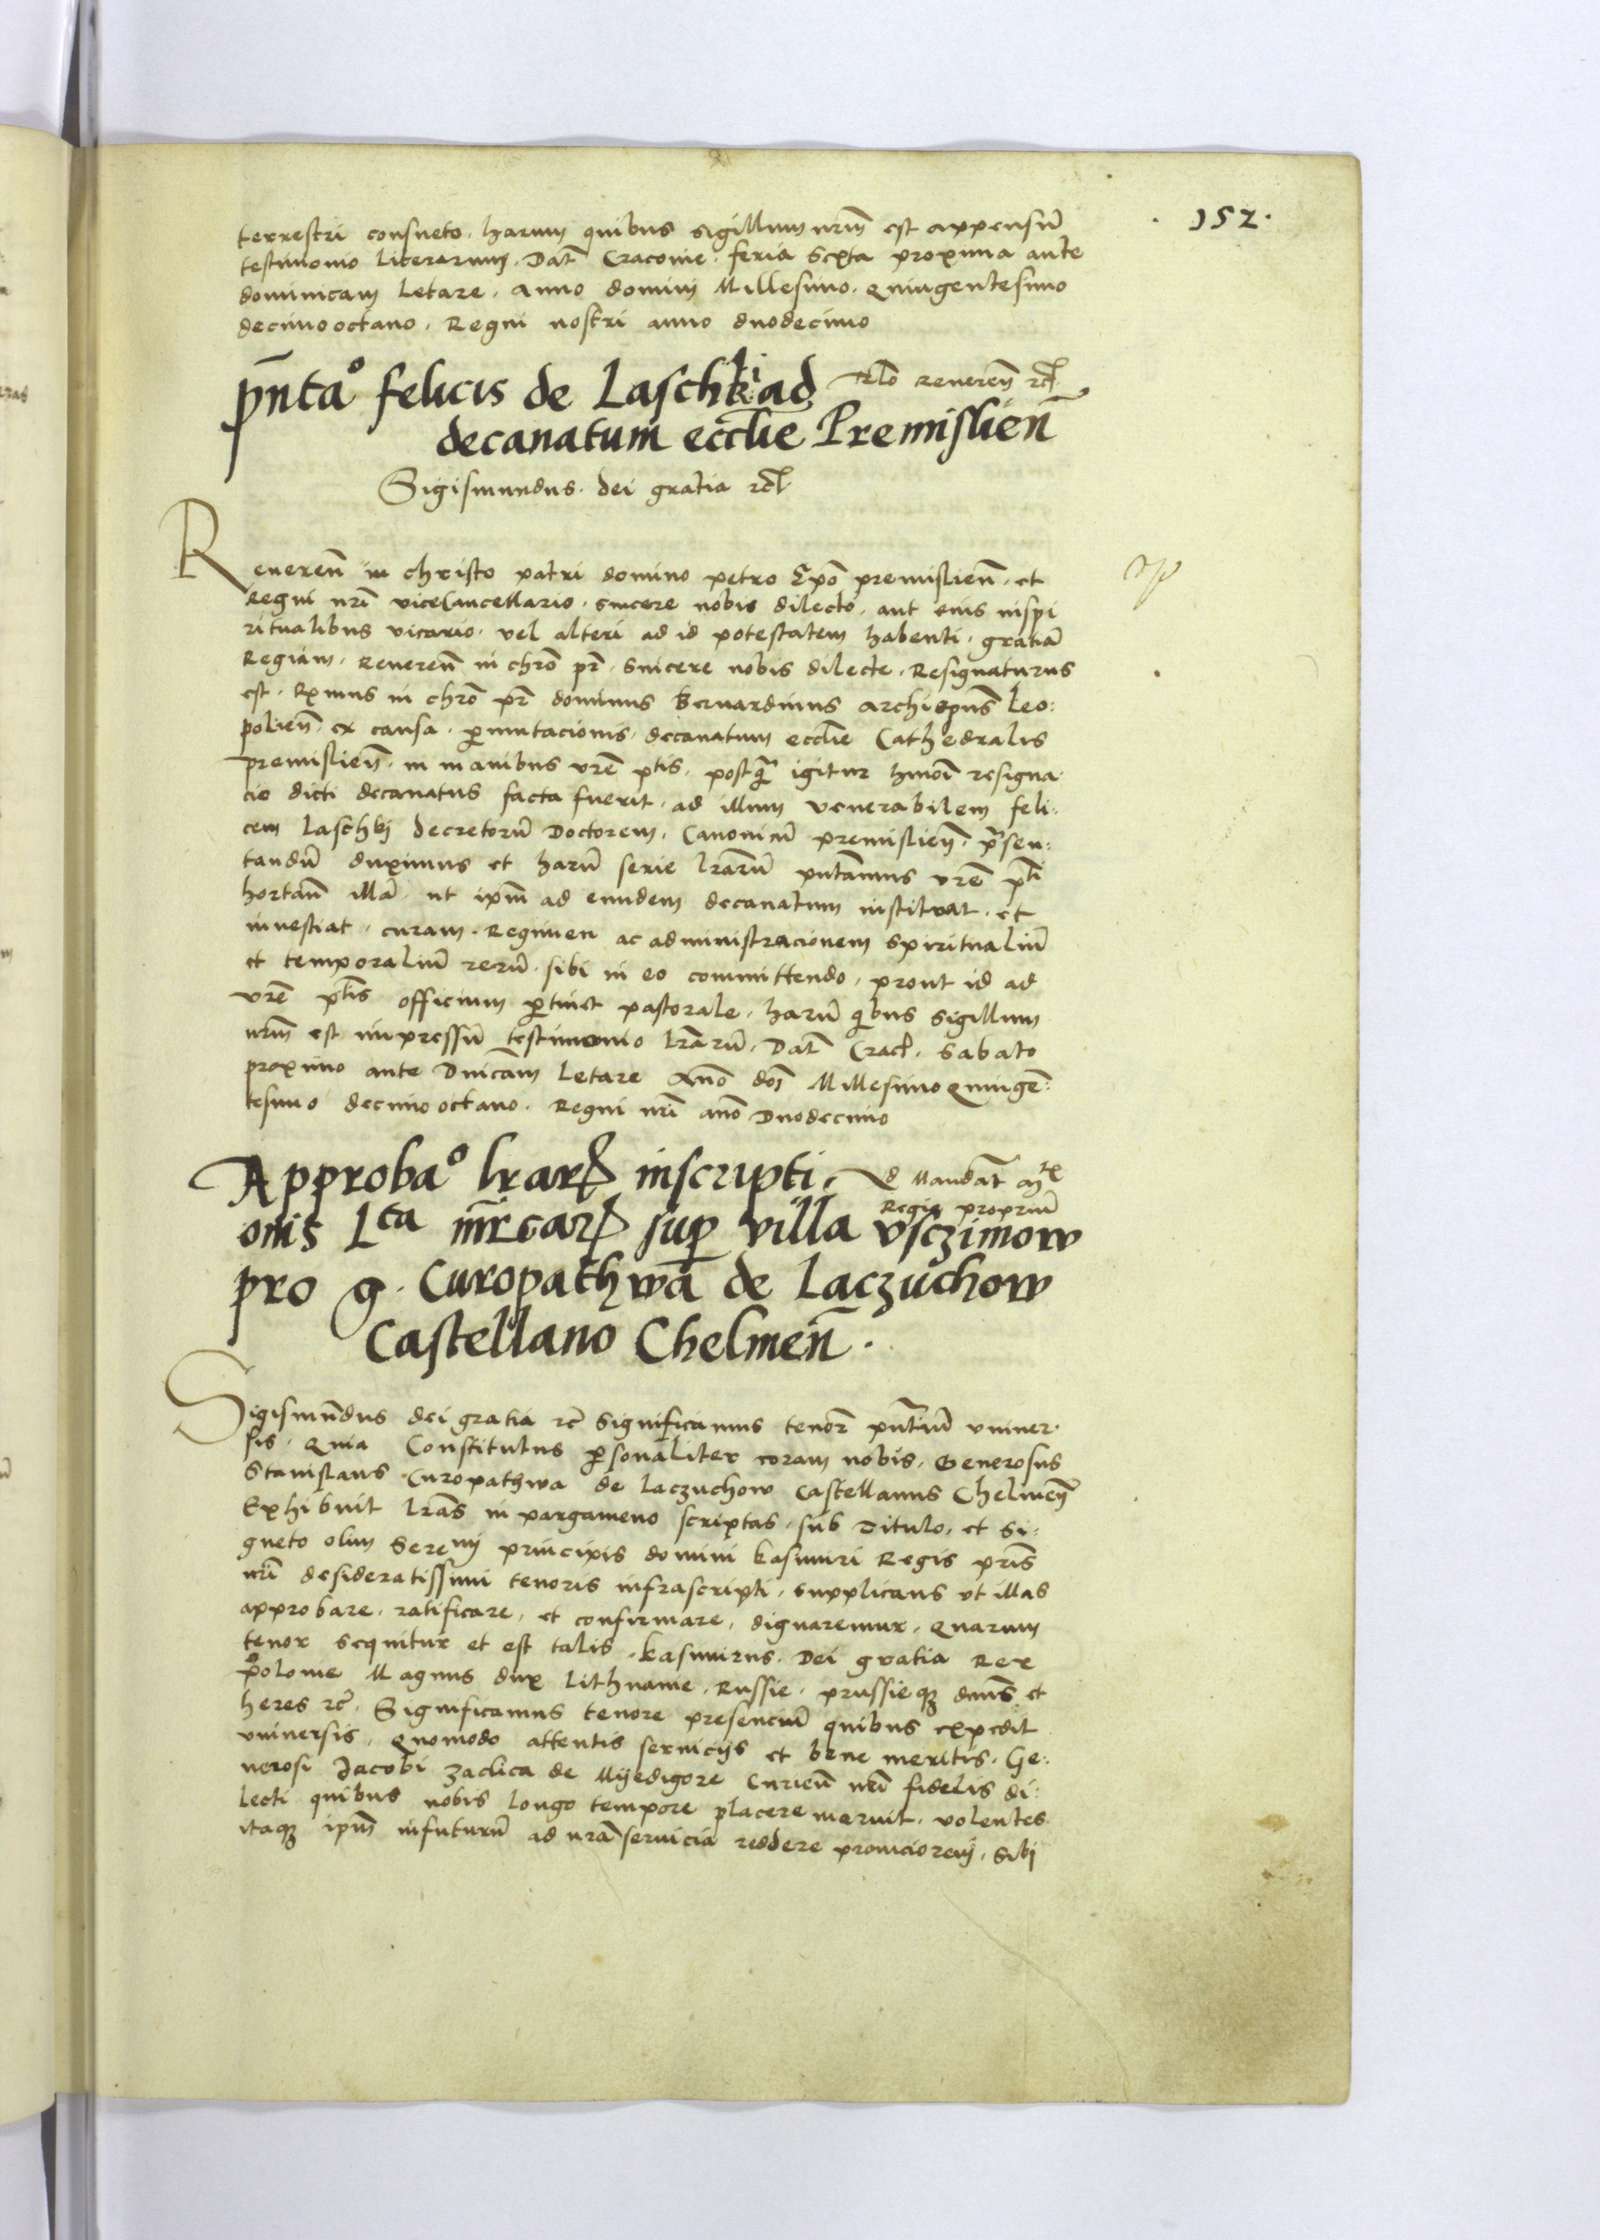 152.
terrestri consueto. harum quibus sigillum nrm̄ est appensū
testimonio literarum. Dat̄ Cracovie. feria Sexta proxima ante
dominicam letare. Anno domini Millesimo. Quingentesimo
decimooctavo. Regni nostri anno duodecimo
pn̄ta° felicis de Laschki ad
Rlō Reveren̄ rc̄
decanatum eccl̄ie Premislien̄
Sigismundus. dei gratia rc̄
Reveren̄ in christo patri domino petro Epō premislien̄. et
Regni nrī viceCancellario. sincere nobis dilecto. aut eius inspi
ritualibus vicario. vel alteri ad id potestatem habenti. gratiā
Regiam. Reveren̄ in chrō pr̄. sincere nobis dilecte. Resignaturus
est. Rx̄mus in chrō pr̄ dominus Bernardinus archiepūs Leo:
polien̄. ex causa. p̄mutacionis. decanatum eccl̄ie Cathedralis
premislien̄. in manibus vrē ptīs. postq̄ igitur hmōi resigna
cio dicti decanatus facta fuerit. ad illum venerabilem feli.
cem laschkj decretorū Doctorem. Canonicū premislien̄. p̄sen:
tandū duximus et harū serie lrārū pn̄tamus vrē ptī
hortan̄ illā. ut ipm̄ ad eundem decanatum instituat. et
investiat. curam. Regimen ac administracionem spiritualiū
et temporaliū rerū. sibi in eo committendo. prout id ad
vrē ptīs officium p̄tinet pastorale. harū q̄ibus sigillum
nrm̄ est impressū testimonio lrārū. Dat̄ Crac̄. Sabato
proximo ante Dnīcam letare Anō dnī Millesimo Quingen̄:
tesimo decimooctavo. Regni nrī anō Duodecimo
Approba° lrar̄ inscripti.
Ad Mandat̄ m̄tx
Regis propriū
onis Lta mr̄car̄ sup̄ villa vsczimow
pro g. Curopathwa de Laczuchow
Castellano Chelmen̄.
Sigismn̄dus dei gratia rc̄ Significamus tenor̄ pn̄tiū univer.
sis. Quia Constitutus p̄sonaliter coram nobis. Generosus
Stanislaus Curopathwa de laczuchow Castellanus Chelmen̄
Exhibuit lrās in pargameno scriptas. sub Titulo. et Si:
gneto olim Serenj principis domini Kasimiri Regis prīs
nrī desideratissimi tenoris infrascripti. supplicans ut illas
approbare. ratificare. et confirmare. dignaremur. Quarum
tenor sequitur et est talis. Kasimirus. Dei gratia Rex
polonie Magnus dux lithuanie. Russie. prussieq̄ dnūs et
heres rc̄. Significamus tenore presenciū quibus expedit
universis. Quomodo attentis serviciis et bene meritis. Ge:
nerosi Jacobi zaclica de Myedigore Curien̄ nrī fidelis di:
lecti quibus nobis longo tempore placere meruit. volentes
itaq̄ ipm̄ infuturū ad nrā servicia reddere prompciorem. Sibj